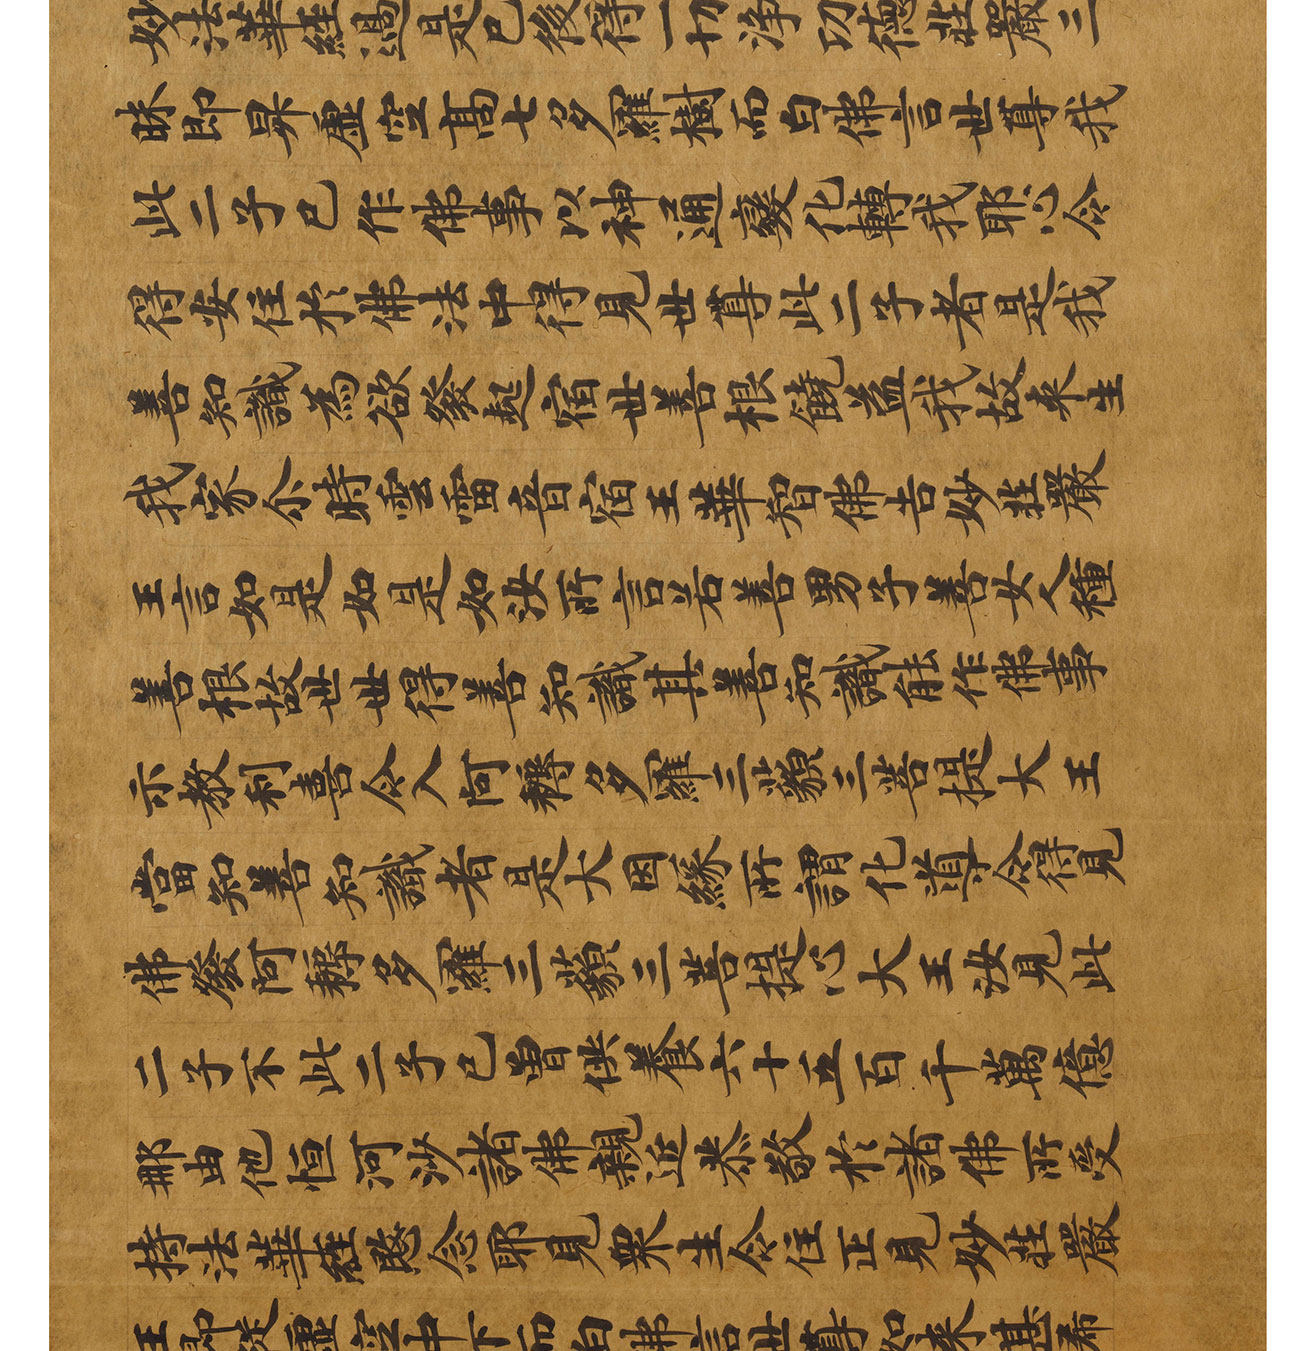 妙法華經過是已後得一切淨功德莊嚴三
昧即昇虛空高七多羅樹而白佛言世尊我
此二子已作佛事以神通變化轉我耶心令
得安住於佛法中得見世尊此二子者是我
善知識為欲發起宿世善根饒益我故來生
我家尒時雲雷音宿王華智佛告妙莊嚴
王言如是如是如汝所言若善男子善女人種
善根故世世得善知識其善知識能作佛事
示教利喜令入阿耨多羅三藐三菩提大王
當知善知識者是大因緣所謂化導令得見
佛發阿耨多羅三藐三菩提心大王汝見此
二子不此二子已曾供養六十五百千萬億
那由他恒河沙諸佛親近恭敬於諸佛所受
持法華經愍念耶見眾生令住正見妙莊嚴
王即從虛空中下而白佛言世尊如來甚希